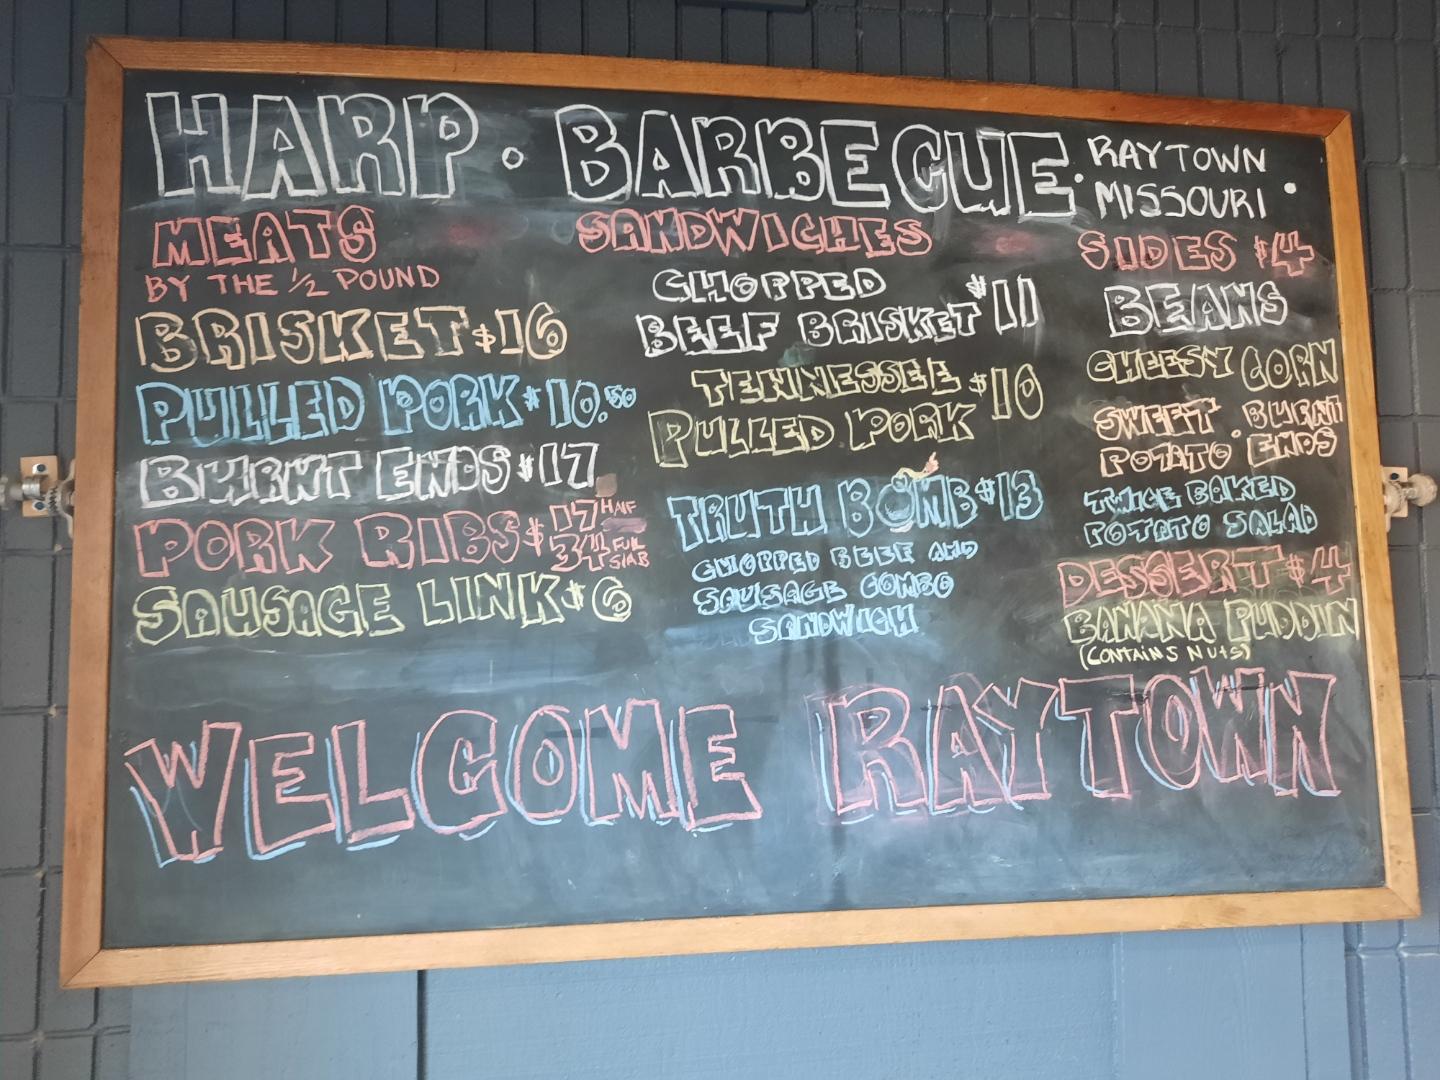 HARP • BARBECUE • RAYTOWN MISSOURI •
MEATS
BY THE 1/2 POUND
BRISKET $16
PULLED PORK $10.50
BURNT ENDS $17
PORK RIBS $17 HALF
34 FULL SLAB
SAUSAGE LINK $6
SANDWICHES
CHOPPED
BEEF BRISKET $11
TENNESSEE
PULLED PORK $10
TRUTH BOMB $13
CHOPPED BEEF AND
SAUSAGE COMBO
SANDWICH
SIDES $4
BEANS
CHEESY CORN
SWEET POTATO • BURNT ENDS
TWICE BAKED
POTATO SALAD
DESSERT $4
BANANA PUDDIN
(CONTAINS NUTS)
WELCOME RAYTOWN